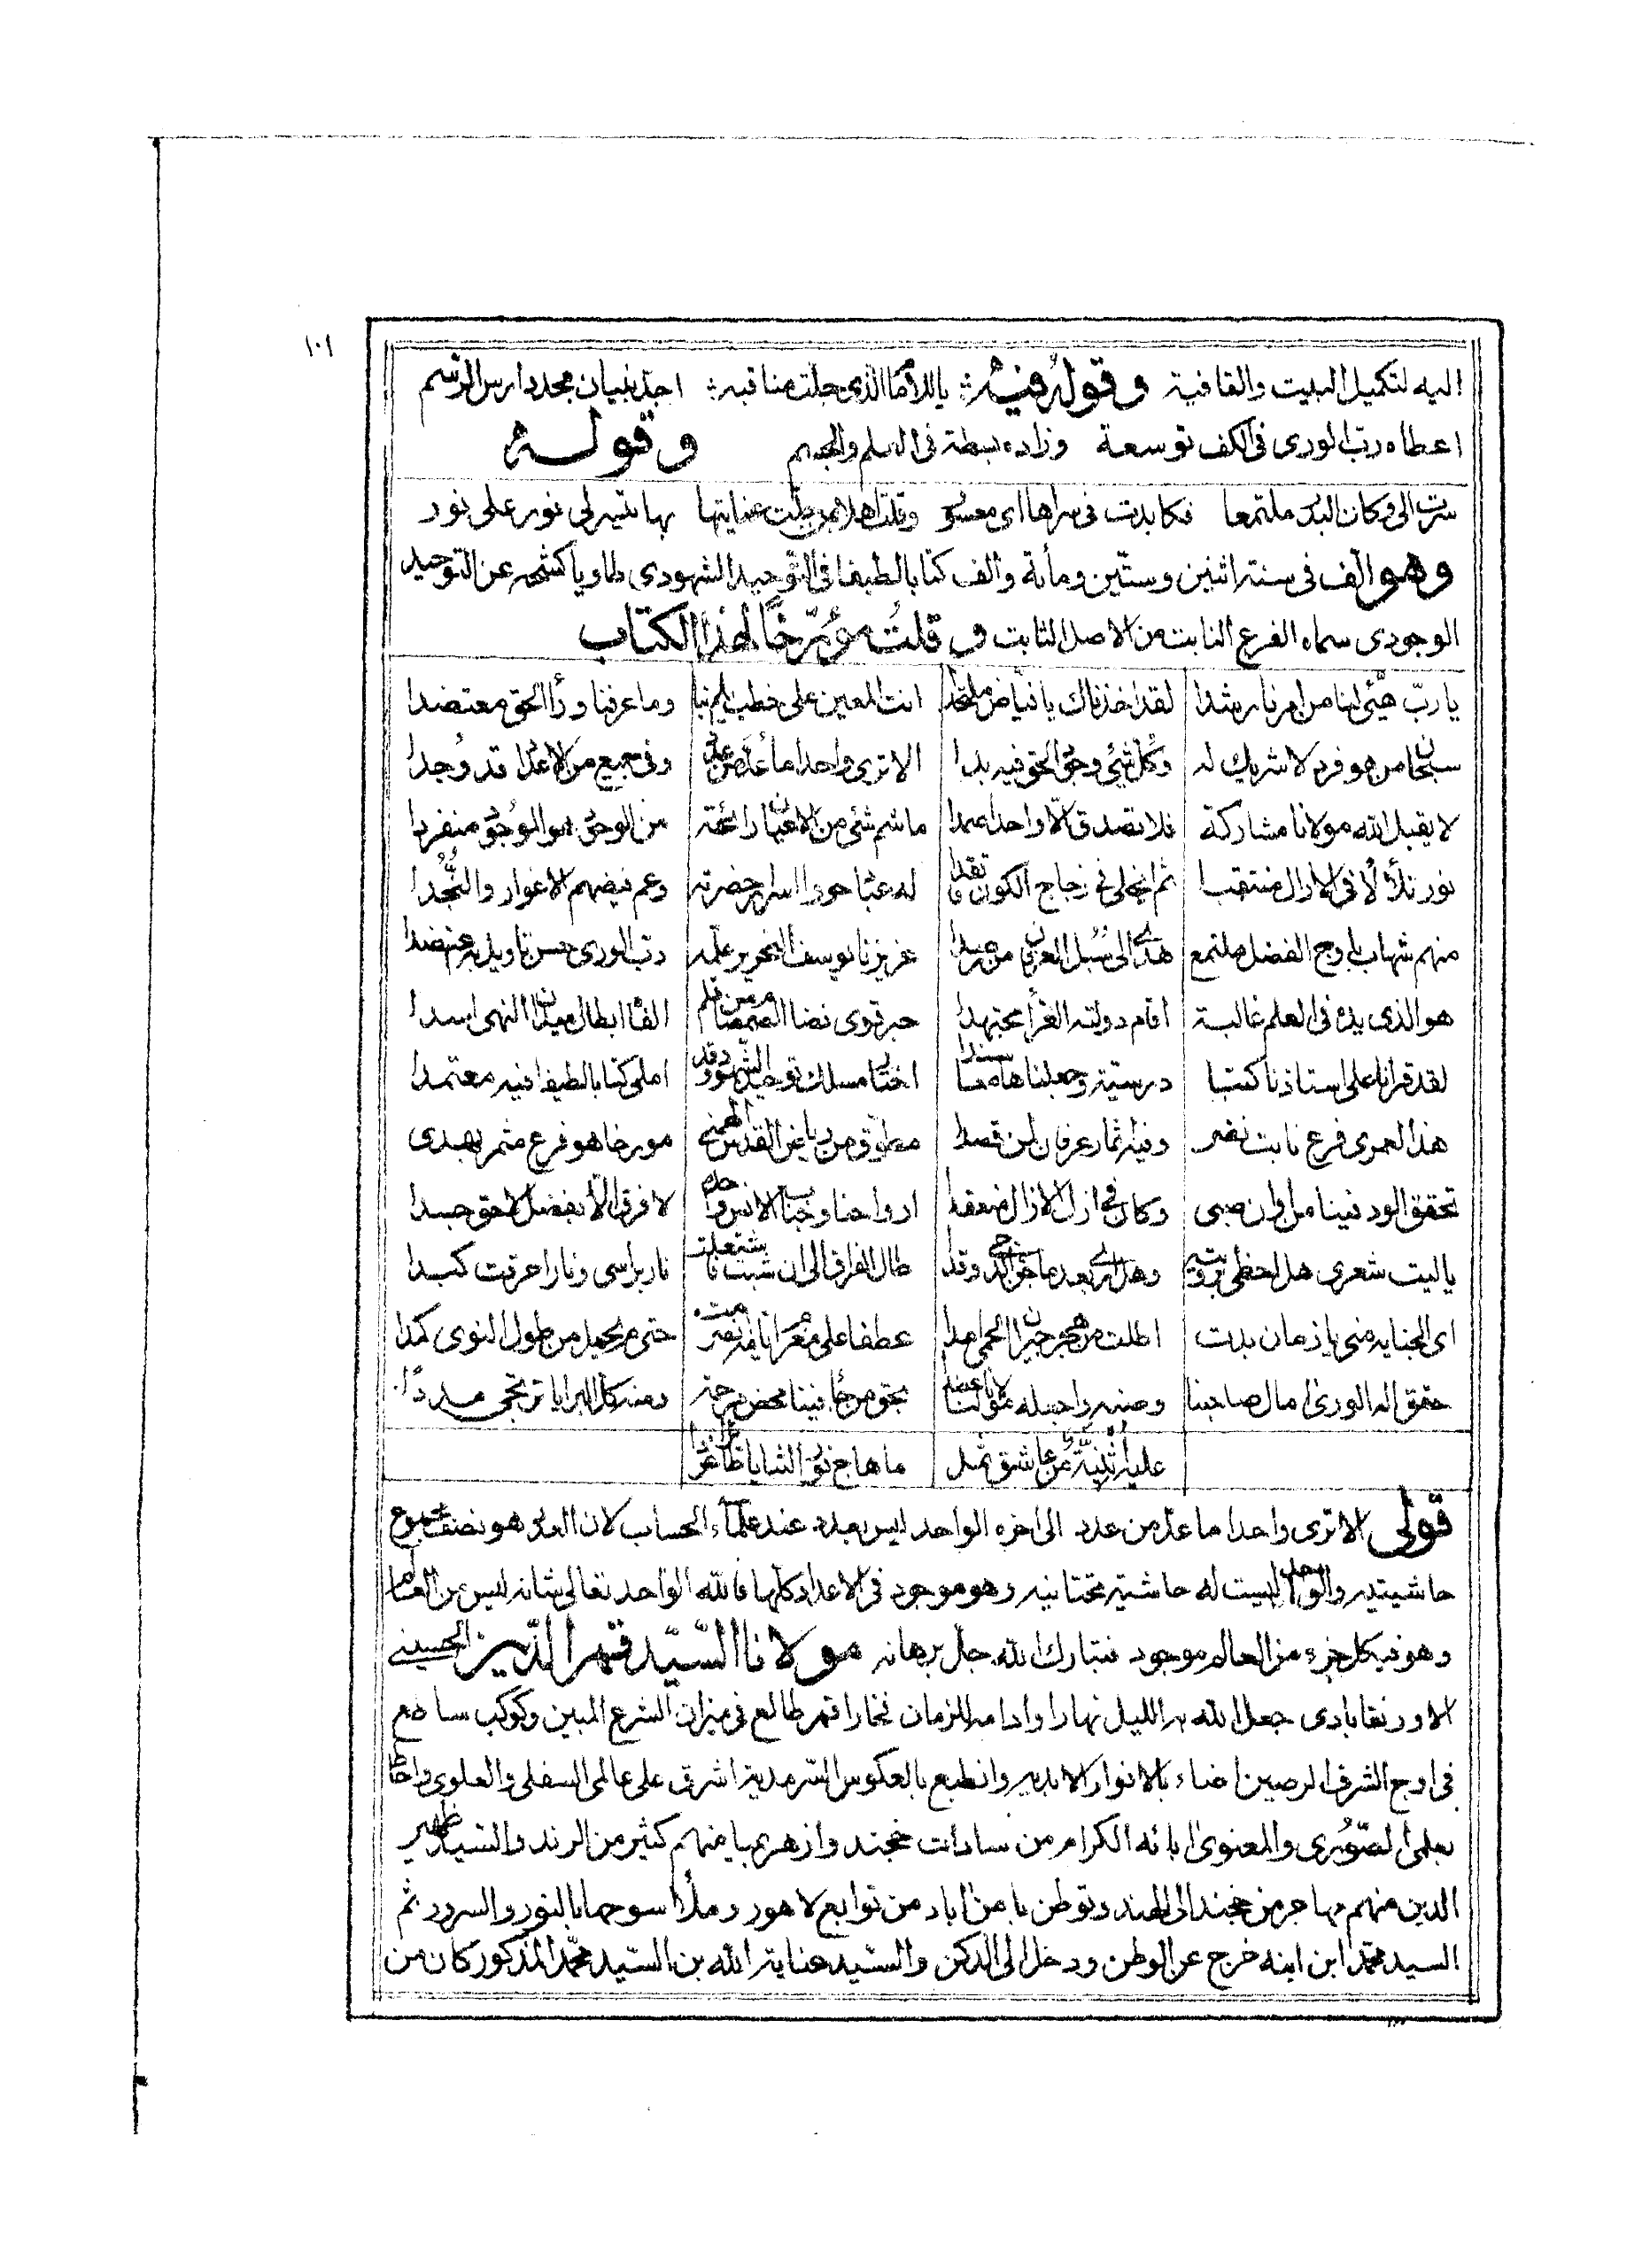 ١٠١
اليه لتكميل البيت والقافية وقوله فيه يا للامام الذي جلت مناقبه احيا ببيان مجدد دارس الرسم
اعطاه رب الورى في الكف توسعة وزاده بسطة في العلم والجسم وقوله
سرت الي وكان البدر ملتمعا فكابدت في سراها اي معسور وقلت اهلا بمن جلت عنايتها بها تيسر لي نور على نور
وهو الف في سنة اثنين وستين ومأية والف كتابا لطيفا في التوحيد الشهودي طاويا كشحه عن التوحيد
الوجودي سماه الفرع النابت من الاصل الثابت و قلت مؤرخا لهذا الكتاب
يا رب هيّئ لنا من امرنا رشدا لقد اخذناك يا فياض ملتحدا انت المعين على خطب وما عرفنا وراء الحق معتضدا
سبحان من هو فرد لا شريك له وكل شيء وجود الحق فيه بدا الا ترى واحدا ما عد من عدد وفي جميع من الاعداد قد وجدا
لا يقبل الله مولانا مشاركة فلا تصدق الا واحدا صمدا ما شم شيء من الاعيان رائحة من الوجود هو الموجود منفردا
نور تلألأ في الازال منتقبا ثم انجلى في زجاج الكون له عباد حووا اسرار حضرته وعم فيضهم الاغوار والنجدا
منهم شهاب باوج الفضل ملتمع هدى الى سبل العرفان من رصدا عزيزنا يوسف النحرير علمه رب الورى حسن تاويل به عضدا
هو الذي يده في العلم غالبة اقام دولته الغراء مجتهدا حبر قوي نضا الصمصام من قلم الفا ابطال ميدان النهى اسدا
لقد قرانا على استاذنا كتبا درسية وجعلناها معا سندا اختار مسلك توحيد الشهود وقد املى كتابا لطيفا فيه معتمدا
هذا لعمري فرع نابت نضر وفيه ثمار عرفان لمن قصدا مطوق من رياض القدس مورخا هو فرع مثمر بهدى
تحقق الود فينا من اوان صبى وكان في ازل الازال منعقدا ارواحنا وحباب الانس واحدة لا فرق الا بفضل لاحق جسدا
يا ليت شعري هل احظى برؤيته وهل اراه بعد ما طال الفراق الى ان شبت فاشتعلت نار براسي ونار احرقت كبدا
اي الجناية مني يا زمان بدت اطلت من هجر جيران الحمى امدا عطفا على مغرم حتى م يحمل من طول النوى كمدا
حقق اله الورى امال صاحبنا وصنه واجعله مؤلانا بحق من جاء فينا محض مرحمة ومنه كل البرايا ترتجي مددا
عليه اثنية من عاشق ثمل ما هاج نور الثنايا
قولي الا ترى واحدا ما عد من عدد الى اخره الواحد ليس بعدد عند علماء الحساب لان العدد هو نصف مجموع
حاشيتيه والواحد ليست له حاشية تحتانيه وهو موجود في الاعداد كلها فالله الواحد تعالى شانه ليس من العالم
وهو في كل جزء من العالم موجود فتبارك الله جل برهانه مولانا السيد قمر الدين الحسيني
الاورنقابادي جعل الله به الليل نهارا وادامه للزمان فخارا قمر طالع في ميزان الشرع المبين وكوكب ساطع
في اوج الشرف الرصين اضاء بالانوار الابديه وانطبع بالعكوس السرمدية اشرق على عالمي السفلي والعلوي واحاط
بعلمي الصوري والمعنوي اباؤه الكرام من سادات خجند وازهر بميامنهم كثير من الرند والسيد ظهير
الدين منهم مهاجر من خجند الى الهند وتوطن بامن اباد من توابع لاهور وملأ سوحها بالنور والسرور ثم
السيد محمد ابن ابنه خرج عن الوطن ودخل الى الدكن والسيد عناية الله بن السيد محمد المذكور كان من